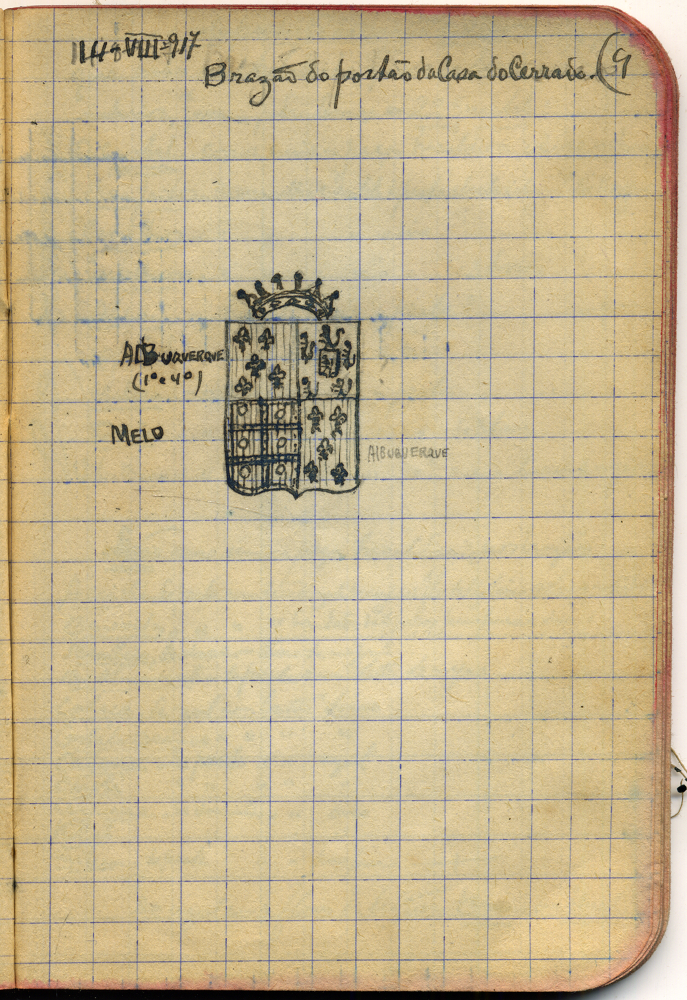 VIII-917
Brazão do portão da Casa do Cerrado. (9
ALBUQUERQUE
(1º e 4º)
MELO
ALBUQUERQUE